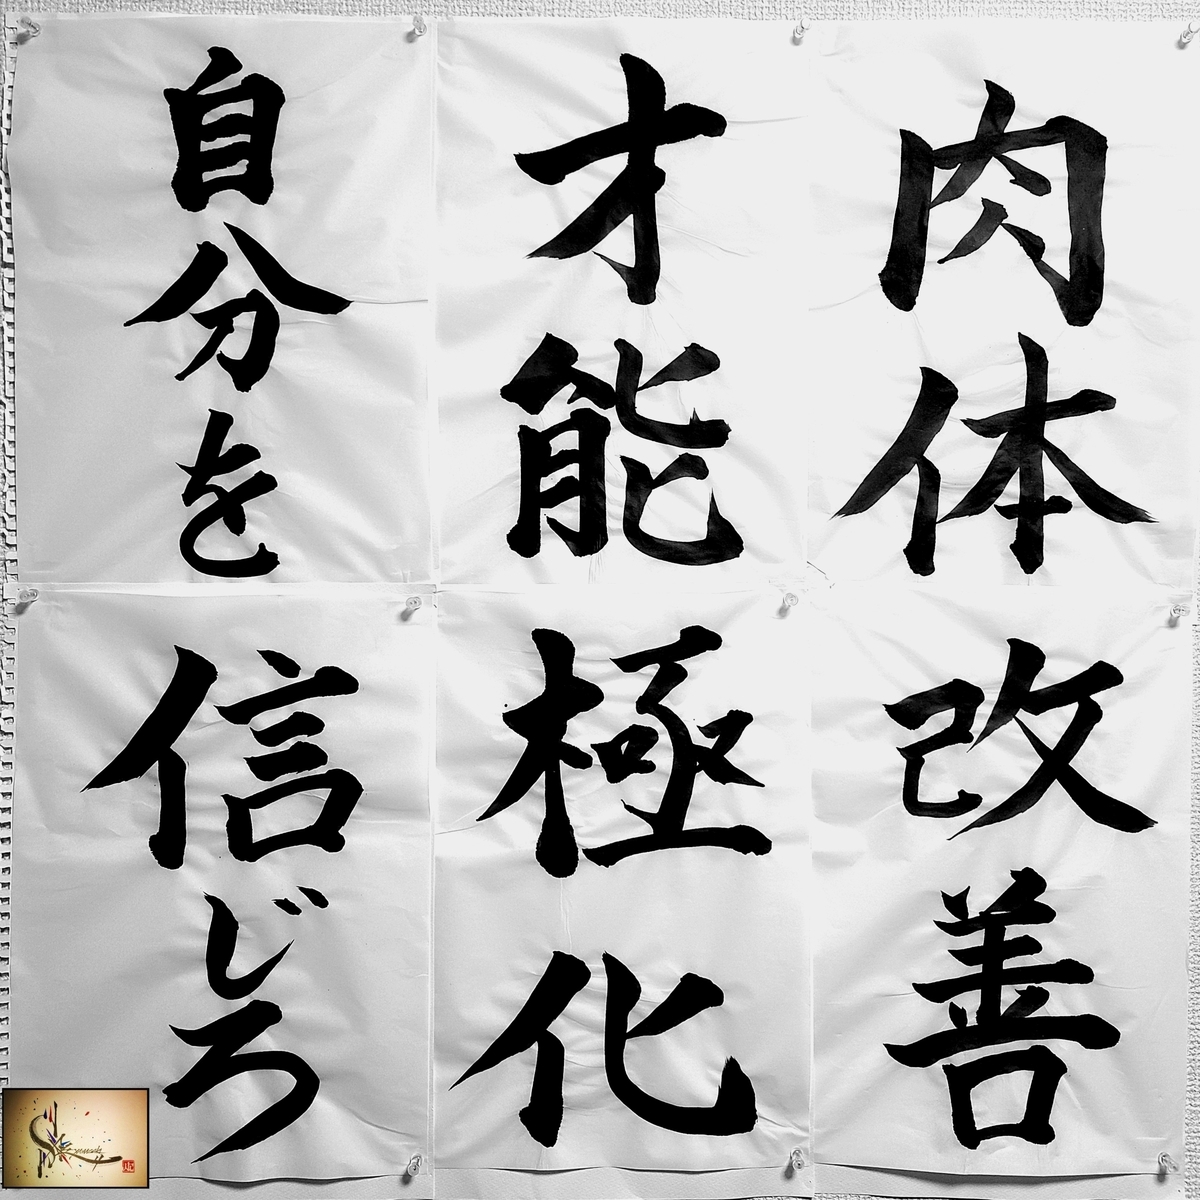 肉体改善
才能極化
自分を信じろ